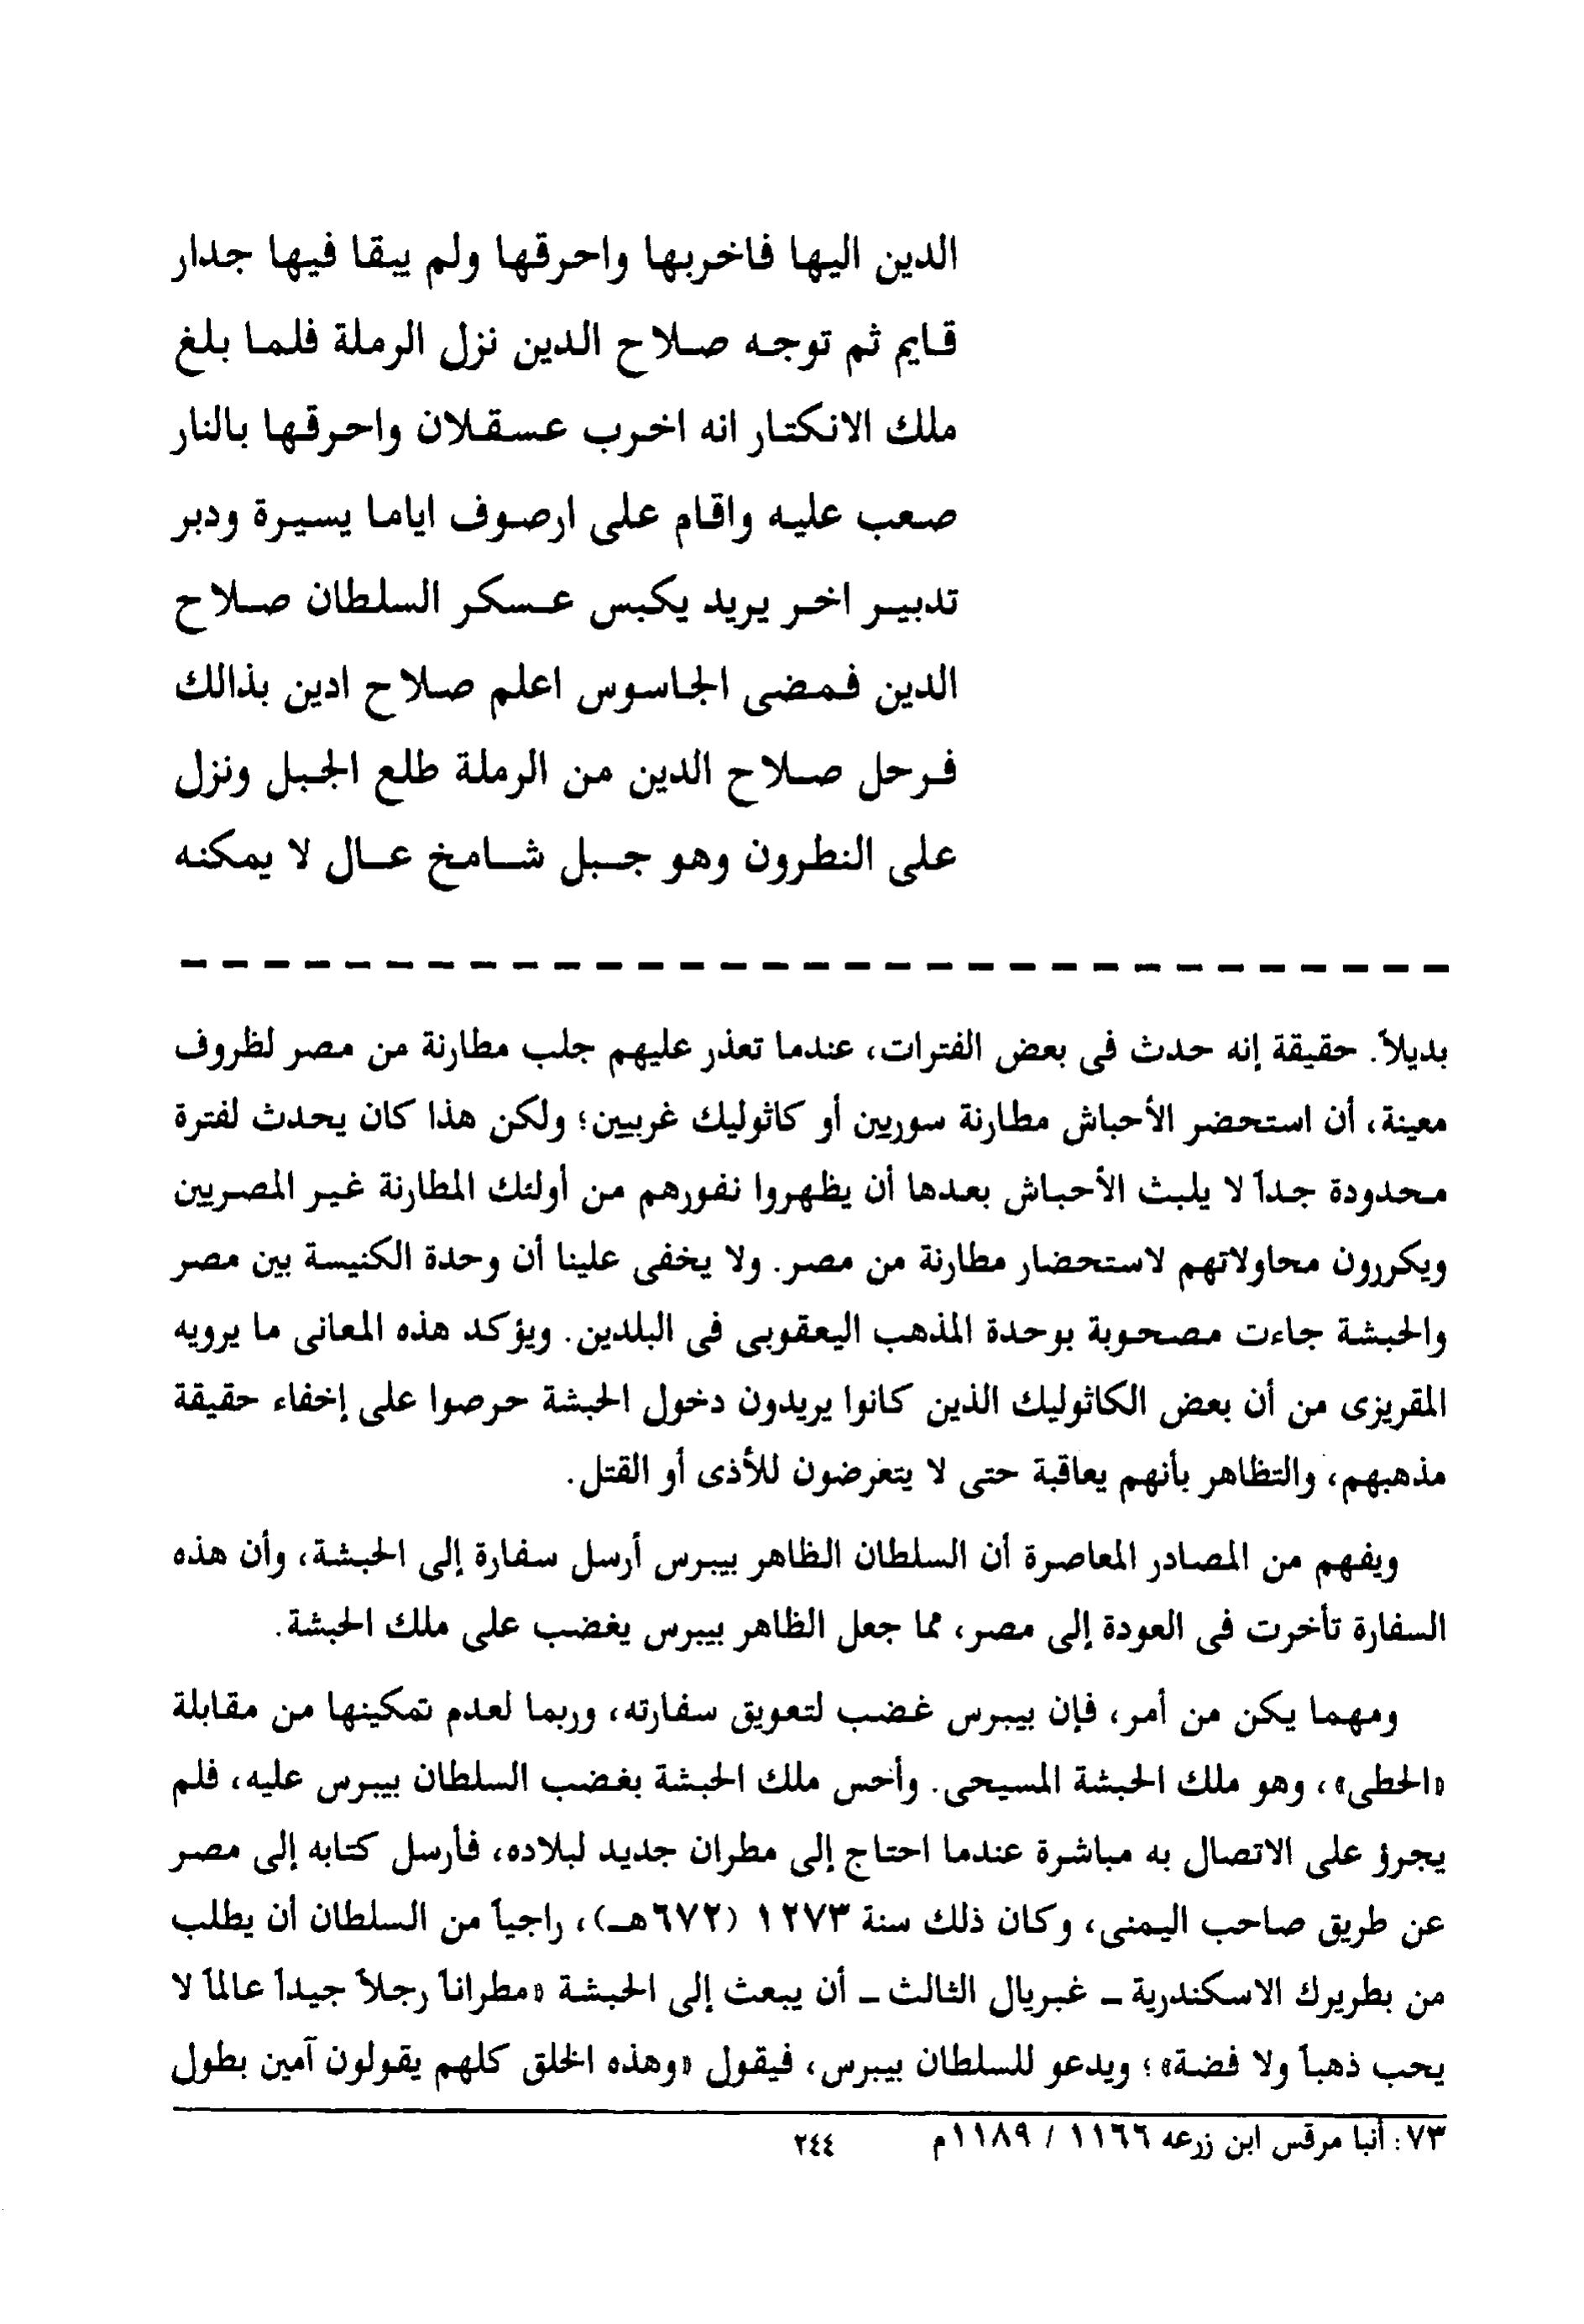 الدين اليها فاخربها واحرقها ولم يبقا فيها جدار
قايم ثم توجه صلاح الدين نزل الرملة فلما بلغ
ملك الانكتار انه اخرب عسقلان واحرقها بالنار
صعب عليه واقام على ارصوف اياما يسيرة ودبر
تدبير اخر يريد يكبس عسكر السلطان صلاح
الدين فمضى الجاسوس اعلم صلاح ادين بذالك
فرحل صلاح الدين من الرملة طلع الجبل ونزل
على النطرون وهو جبل شامخ عال لا يمكنه
بديلاً. حقيقة إنه حدث فى بعض الفترات، عندما تعذر عليهم جلب مطارنة من مصر لظروف
معينة، أن استحضر الأحباش مطارنة سوريين أو كاثوليك غربيين؛ ولكن هذا كان يحدث لفترة
محدودة جداً لا يلبث الأحباش بعدها أن يظهروا نفورهم من أولئك المطارنة غير المصريين
ويكررون محاولاتهم لاستحضار مطارنة من مصر. ولا يخفى علينا أن وحدة الكنيسة بين مصر
والحبشة جاءت مصحوبة بوحدة المذهب اليعقوبى فى البلدين. ويؤكد هذه المعانى ما يرويه
المقريزى من أن بعض الكاثوليك الذين كانوا يريدون دخول الحبشة حرصوا على إخفاء حقيقة
مذهبهم، والتظاهر بأنهم يعاقبة حتى لا يتعرضون للأذى أو القتل.
ويفهم من المصادر المعاصرة أن السلطان الظاهر بيبرس أرسل سفارة إلى الحبشة، وأن هذه
السفارة تأخرت فى العودة إلى مصر، مما جعل الظاهر بيبرس يغضب على ملك الحبشة.
ومهما يكن من أمر، فإن بيبرس غضب لتعويق سفارته، وربما لعدم تمكينها من مقابلة
«الحطى»، وهو ملك الحبشة المسيحى. وأحس ملك الحبشة بغضب السلطان بيبرس عليه، فلم
يجرؤ على الاتصال به مباشرة عندما احتاج إلى مطران جديد لبلاده، فأرسل كتابه إلى مصر
عن طريق صاحب اليمنى، وكان ذلك سنة ١٢٧٣ (٦٧٢هـ)، راجياً من السلطان أن يطلب
من بطريرك الاسكندرية - غبريال الثالث - أن يبعث إلى الحبشة «مطراناً رجلاً جيداً عالماً لا
يحب ذهباً ولا فضة»؛ ويدعو للسلطان بيبرس، فيقول «وهذه الخلق كلهم يقولون آمين بطول
٧٣: أنبا مرقس ابن زرعه ١١٦٦ / ١١٨٩م ٢٤٤